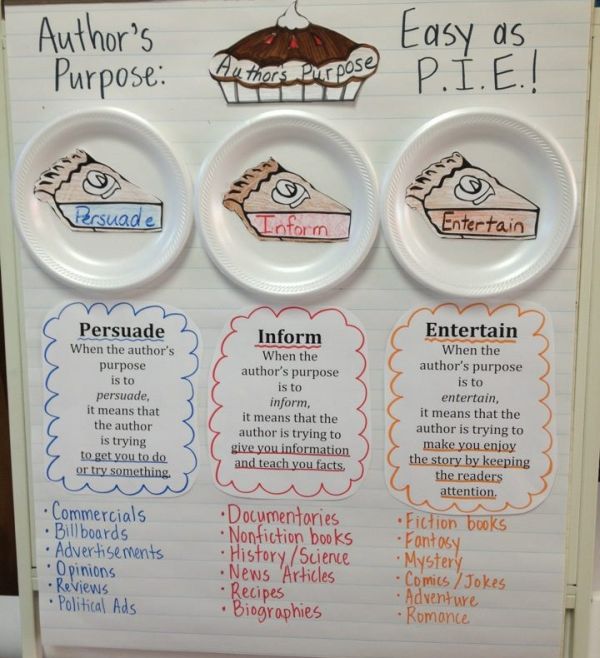 Author's
Purpose:
Author's Purpose
Easy as
P.I.E.!
Persuade
Inform
Entertain
Persuade
When the author's
purpose
is to
persuade,
it means that
the author
is trying
to get you to do
or try something.
Inform
When the
author's purpose
is to
inform,
it means that the
author is trying to
give you information
and teach you facts.
Entertain
When the
author's purpose
is to
entertain,
it means that the
author is trying to
make you enjoy
the story by keeping
the readers
attention.
• Commercials
• Billboards
• Advertisements
• Opinions
• Reviews
• Political Ads
• Documentaries
• Nonfiction books
• History/Science
• News Articles
• Recipes
• Biographies
• Fiction books
• Fantasy
• Mystery
• Comics/Jokes
• Adventure
• Romance